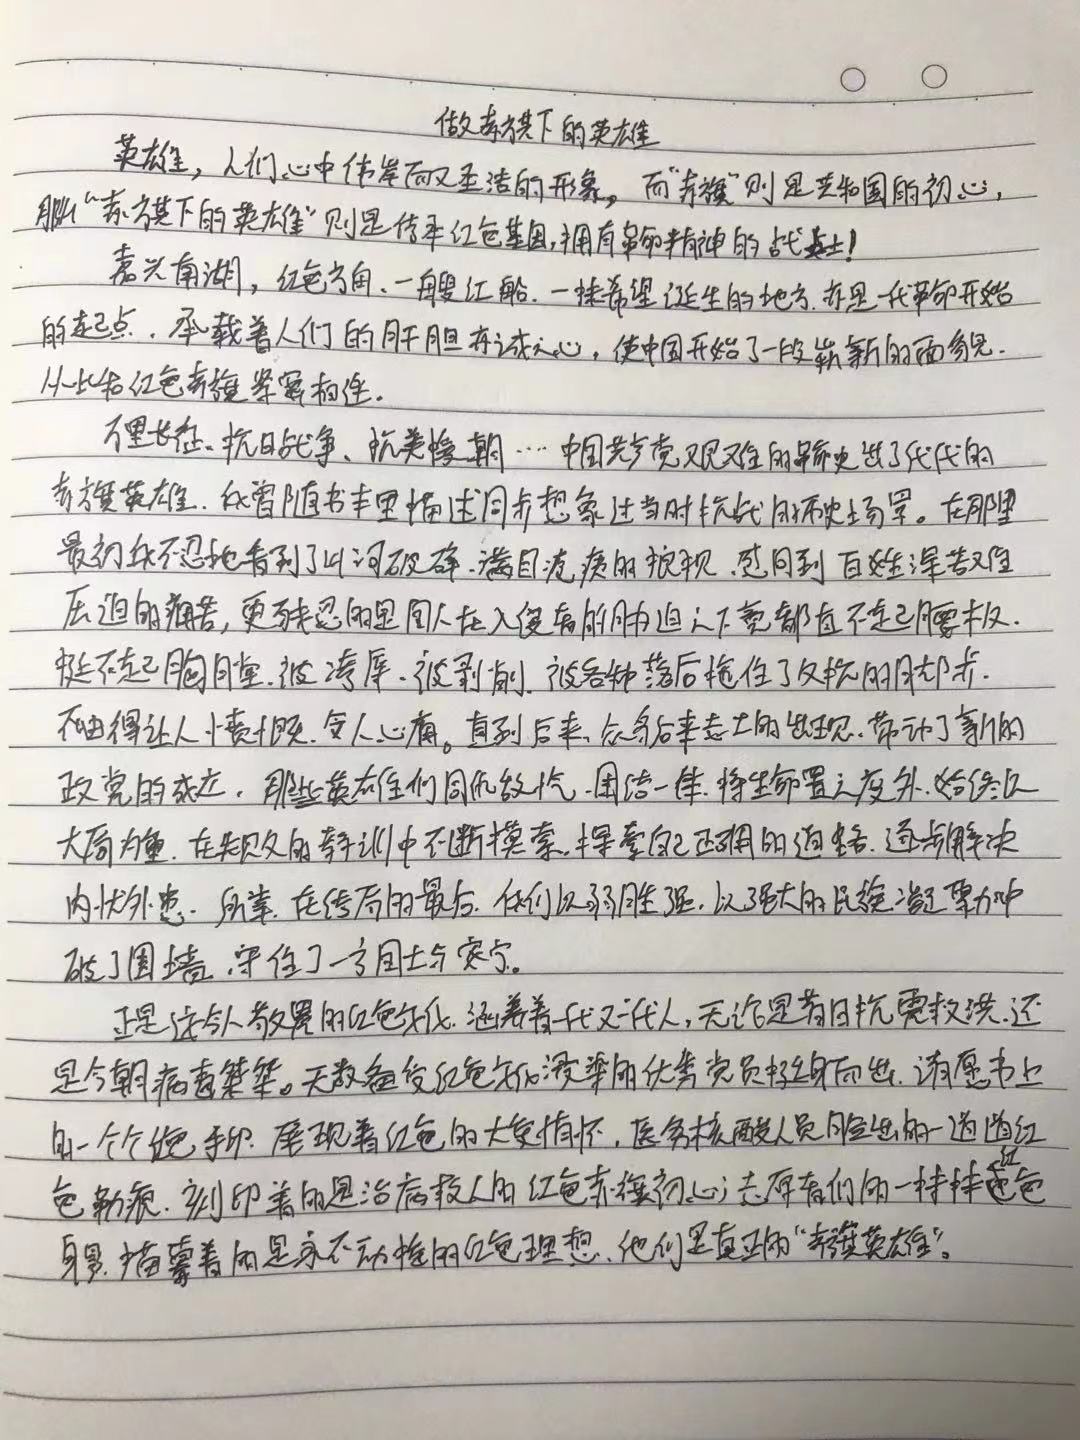 做赤旗下的英雄
英雄，人们心中伟岸而又圣洁的形象，而"赤旗"则是共和国的初心，
那么"赤旗下的英雄"则是传承红色基因，拥有革命精神的战士！
嘉兴南湖，红色方舟、一艘红船、一抹希望诞生的地方、亦是一代革命开始
的起点、承载着人们的肝胆赤诚之心，使中国开始了一段崭新的面貌、
从此和红色赤旗紧密相连。
万里长征、抗日战争、抗美援朝……中国共产党艰难的历史出了代代的
赤旗英雄、我曾随书本里描述同步想象过当时抗战的历史场景。在那里
最初我不忍地看到了山河破碎、满目疮痍的景观、感同到百姓深苦难
压迫的痛苦，更残忍的是国人在入侵者的胁迫之下竟都直不起腰板、
挺不起胸膛、被凌辱、被剥削、被各种落后拖住了反抗的脚步、
不由得让人愤慨、令人心痛。直到后来、众多后来志士的出现、带动了新的
政党的成立、那些英雄们同仇敌忾、团结一体、将生命置之度外、始终以
大局为重、在失败的教训中不断摸索、探索自己正确的道路、逐步解决
内忧外患、所幸、在结局的最后、他们以弱胜强、以强大的民族凝聚力冲
破了围墙、守住了一方国土与安宁。
正是这令人敬畏的红色年代、涵养着一代又一代人，无论是昔日抗震救洪、还
是今朝病毒肆虐。无数受红色年代浸染的优秀党员挺身而出、请愿书上
的一个个红色手印、展现着红色的大爱情怀，医务核酸人员脸上的一道道红
色勒痕、刻印着的是治病救人的红色赤旗初心；志愿者们的一抹抹红色
身影、描摹着的是永不动摇的红色理想、他们是真正的"赤旗英雄"。